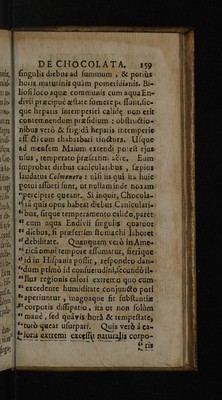 DE CHOCOLATA. 159
singulis diebus ad summum, & potiùs
horis matutinis quàm pomeridianis. Bi-
liosi loco aquæ communis cum aqua En-
divii præcipuè æstate sumere possunt, sic-
que hepatis intemperiei calidæ non erit
contemnendum præsidium: obstructio-
nibus verò & frigidâ hepatis intemperie
affecti cum rhabarbari tinctura. Usque
ad mensem Maium extendi potest ejus
usus, temperato præsertim aëre. Eum
improbat diebus canicularibus, sæpius
laudatus Colmenero: nisi iis qui ita huic
potui assueti sunt, ut nullam inde noxam
percipere queant. Si inquit, Chocola-
ta quis opus habeat diebus Caniculari-
bus, sitque temperamento calido, paret
cum aqua Endivii singulis quatuor
diebus, si præsertim stomachi laboret
debilitate. Quanquam verò in Ame-
rica omni tempore assumatur, fierique
id in Hispania possit, respondeo dan-
dum primò id consuetudini, secundò il-
lius regionis calori extremo quo cum
excedente humiditate conjuncto pori
aperiuntur, magnaque fit substantiæ
corporis dissipatio, ita ut non solùm
manè, sed quâvis horâ & tempestate,
tutò queat usurpari. Quia verò à ca-
loris extremi excessu naturalis corpo-
ris